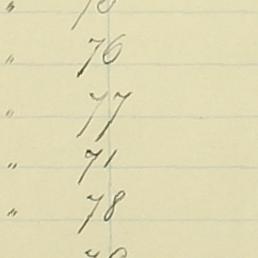 "
" 76
" 77
" 71
" 78